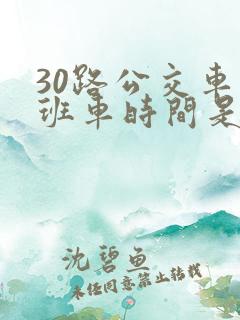 30路公交車
班車時間是
沈碧魚
未经同意禁止转载